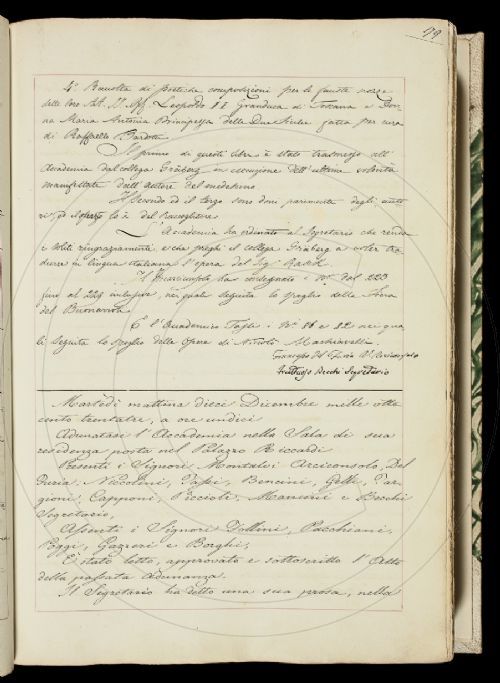 79
4.° Raccolta di poetiche composizioni per le fauste nozze
delle loro AA. II. e RR. Leopoldo II Granduca di Toscana e Don
na Maria Antonia Principessa delle Due Sicilie fatta per cura
di Raffaello
Il primo di questi libri è stato trasmesso all'
Accademia dal collega Gräberg in esecuzione dell'ultima volontà
manifestata dall'autore del medesimo.
Il secondo ed il terzo sono doni parimente degli autori
e il quarto lo è del Raccoglitore.
L'Accademia ha ordinato al Segretario che renda
i soliti ringraziamenti e che preghi il collega Gräberg a voler tra
durre in lingua italiana l'opera del Sig.
Il Arciconsolo ha consegnato i N.i dal 223
fino al 228 inclusive, nei quali seguita lo spoglio della Fiera
del Buonarroti.
E l'Accademico Tassi i N.i 86 e 82 nei qua
li seguita lo spoglio delle Opere di Niccolò Machiavelli.
Arciconsolo
Fruttuoso Becchi Segretario
Martedì mattina dieci Dicembre mille otto
cento trentatre, a ore undici
Adunatasi l'Accademia nella Sala di sua
residenza posta nel Palazzo Riccardi
Presenti i Signori Montalvi Arciconsolo, Del
Furia, Niccolini, Tassi, Bencini, Gelli, Tar
gioni, Capponi, Piccioli, Mancini e Becchi
Segretario,
Assenti i Signori Follini, Pacchiani,
Poggi, Gazzeri e Borghi,
È stato letto, approvato e sottoscritto l'Atto
della passata Adunanza.
Il Segretario ha letto una sua prosa, nella